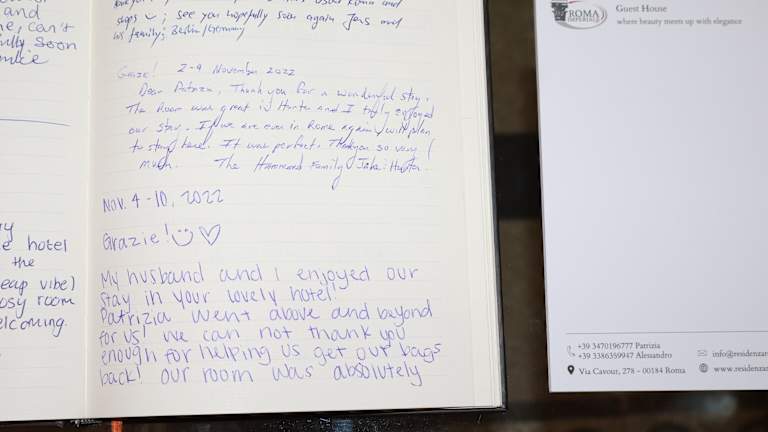 and
ne, can't
fully soon
steps ; see you hopefully soon again Jens and
his family; Berlin/Germany
Grazie! 2-9 November 2022
Dear Patrizia, Thank you for a wonderful stay.
The Room was great & Hunter and I truly enjoyed
our stay. If we are ever in Rome again, I will plan
to stay here. It was perfect. Thank you so very
much. The Hammond Family Jake & Hunter
Nov. 4-10, 2022
Grazie!
My husband and I enjoyed our
stay in your lovely hotel!
Patrizia went above and beyond
for us! we can not thank you
enough for helping us get out bags
back! our room was absolutely
e hotel
the
eap vibe)
osy room
elcoming.
ROMA
IMPERIALE
Guest House
where beauty meets up with elegance
+39 3470196777 Patrizia
+39 3386359947 Alessandro
Via Cavour, 278 - 00184 Roma
info@residenzar
www.residenzar